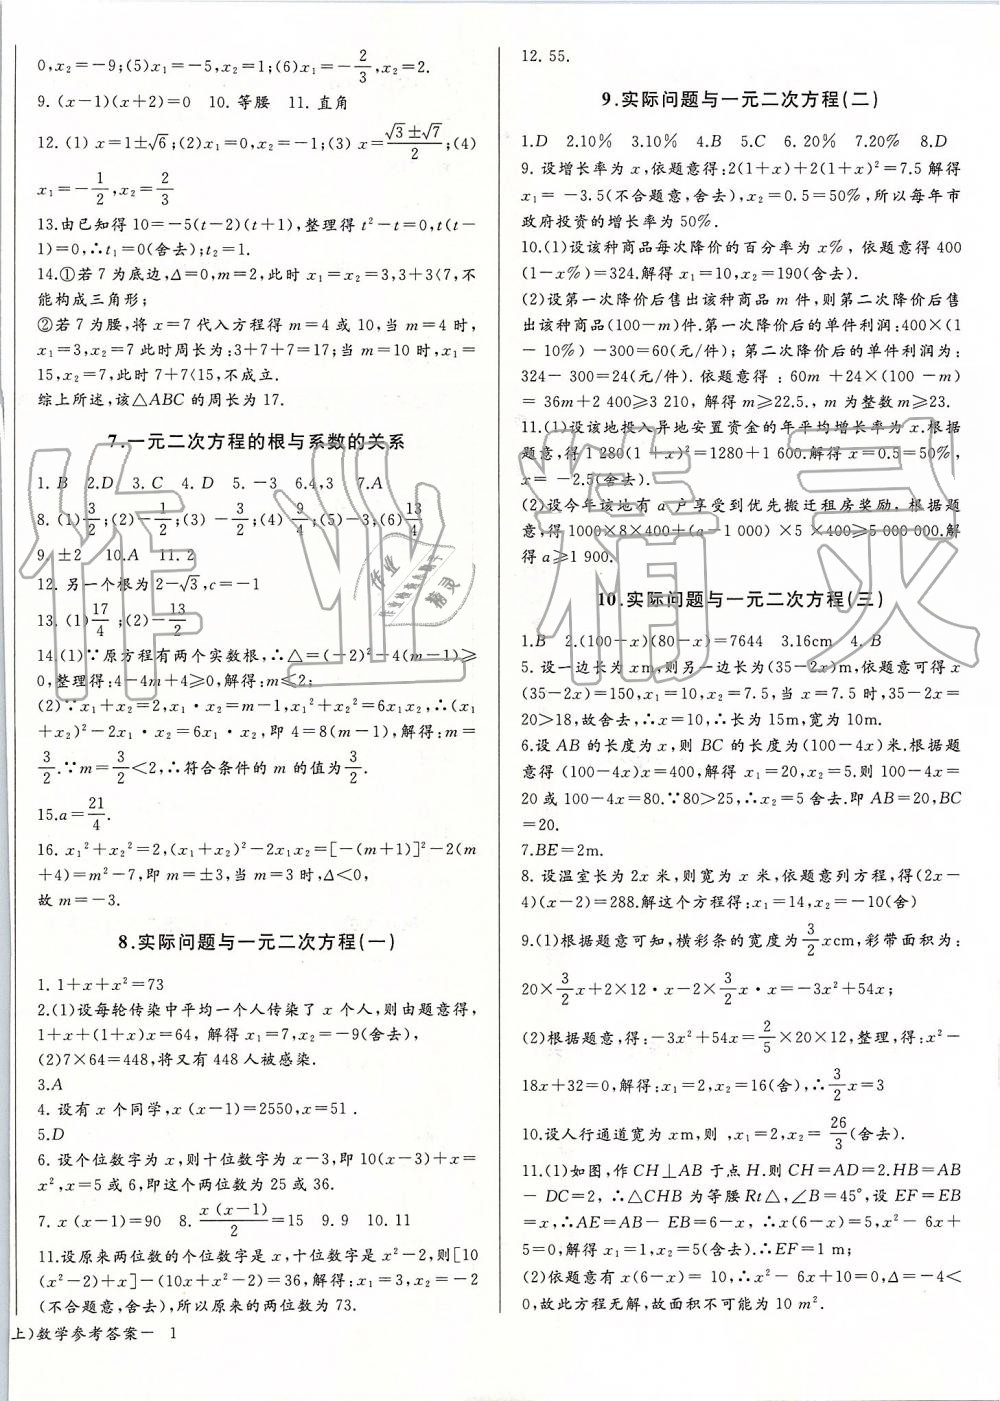 0,x₂=-9;(5)x₁=-5,x₂=1;(6)x₁=-2/3,x₂=2.
9. (x-1)(x+2)=0 10. 等腰 11. 直角
12. (1) x=1±√6;(2)x₁=0,x₂=-1;(3) x=(√3±√7)/2;(4)
x₁=-1/2,x₂=2/3
13.由已知得10=-5(t-2)(t+1),整理得t²-t=0,t(t-
1)=0,∴t₁=0(舍去);t₂=1.
14.①若7为底边,Δ=0,m=2,此时x₁=x₂=3,3+3〈7,不
能构成三角形;
②若7为腰,将x=7代入方程得m=4或10,当m=4时,
x₁=3,x₂=7此时周长为:3+7+7=17;当m=10时,x₁=
15,x₂=7,此时7+7〈15,不成立.
综上所述,该△ABC的周长为17.
7.一元二次方程的根与系数的关系
1. B 2.D 3. C 4. D 5. -3 6.4,3 7.A
8. (1)3/2;(2)-1/2;(3) -3/2;(4)9/4;(5)-3;(6)13/4
9. ±2 10.A 11. 2
12. 另一个根为2-√3,c=-1
13. (1)17/4;(2)-13/2
14.(1)∵原方程有两个实数根,∴△=(-2)²-4(m-1)≥
0,整理得:4-4m+4≥0,解得:m≤2;
(2)∵x₁+x₂=2,x₁·x₂=m-1,x₁²+x₂²=6x₁x₂,∴(x₁
+x₂)²-2x₁·x₂=6x₁·x₂,即4=8(m-1),解得:m=
3/2.∵m=3/2<2,∴符合条件的m的值为3/2.
15.a=21/4.
16. x₁²+x₂²=2,(x₁+x₂)²-2x₁x₂=[-(m+1)]²-2(m
+4)=m²-7,即m=±3,当m=3时,Δ<0,
故m=-3.
8.实际问题与一元二次方程(一)
1. 1+x+x²=73
2.(1)设每轮传染中平均一个人传染了x个人,则由题意得,
1+x+(1+x)x=64, 解得x₁=7,x₂=-9(舍去),
(2)7×64=448,将又有448人被感染.
3.A
4. 设有x个同学,x(x-1)=2550,x=51.
5.D
6. 设个位数字为x,则十位数字为x-3,即10(x-3)+x=
x²,x=5或6,即这个两位数为25或36.
7. x(x-1)=90 8. x(x-1)/2=15 9. 9 10. 11
11.设原来两位数的个位数字是x,十位数字是x²-2,则[10
(x²-2)+x]-(10x+x²-2)=36,解得:x₁=3,x₂=-2
(不合题意,舍去),所以原来的两位数为73.
上)数学参考答案— 1
12. 55.
9.实际问题与一元二次方程(二)
1.D 2.10% 3.10% 4.B 5.C 6. 20% 7.20% 8.D
9. 设增长率为x,依题意得:2(1+x)+2(1+x)²=7.5解得
x₁= -3.5(不合题意,舍去),x₂=0.5=50%,所以每年市
政府投资的增长率为50%.
10.(1)设该种商品每次降价的百分率为x%, 依题意得400
(1-x%)=324.解得x₁=10,x₂=190(舍去).
(2)设第一次降价后售出该种商品m件,则第二次降价后售
出该种商品(100-m)件.第一次降价后的单件利润:400×(1
- 10%)-300=60(元/件); 第二次降价后的单件利润为:
324- 300=24(元/件). 依题意得:60m+24×(100-m)=
36m+2 400≥3 210, 解得m≥22.5., m为整数m≥23.
11.(1)设该地投入异地安置资金的年平均增长率为x.根据
题意,得1 280(1+x)²=1280+1 600.解得x=0.5=50%,
x= -2.5(舍去).
(2)设今年该地有a户享受到优先搬迁租房奖励. 根据题
意,得1000×8×400+(a-1 000)×5×400≥5 000 000.解
得a≥1 900.
10.实际问题与一元二次方程(三)
1.B 2.(100-x)(80-x)=7644 3.16cm 4.B
5. 设一边长为xm,则另一边长为(35-2x)m,依题意可得x
(35-2x)=150,x₁=10,x₂=7.5,当x=7.5时,35-2x=
20>18,故舍去,∴x=10,∴长为15m,宽为10m.
6.设AB的长度为x,则BC的长度为(100-4x)米.根据题
意得(100-4x)x=400,解得x₁=20,x₂=5.则100-4x=
20或100-4x=80.∵80>25,∴x₂=5舍去.即AB=20,BC
=20.
7.BE=2m.
8. 设温室长为2x米,则宽为x米,依题意列方程,得(2x-
4)(x-2)=288.解这个方程得:x₁=14,x₂=-10(舍)
9.(1)根据题意可知,横彩条的宽度为3/2xcm,彩带面积为:
20×3/2x+2×12·x-2×3/2x·x=-3x²+54x;
(2)根据题意,得:-3x²+54x=2/5×20×12,整理,得:x²-
18x+32=0,解得:x₁=2,x₂=16(舍),∴3/2x=3
10.设人行通道宽为xm,则,x₁=2,x₂=26/3(舍去).
11.(1)如图,作CH⊥AB于点H.则CH=AD=2.HB=AB
- DC=2, ∴△CHB为等腰Rt△,∠B=45°,设EF=EB
=x,∴AE=AB-EB=6-x, ∴x(6-x)=5,x²-6x+
5=0,∴x₁=1,x₂=5(舍去).∴EF=1m;
(2)依题意有x(6-x)=10,∴x²-6x+10=0,Δ=-4<
0,故此方程无解,故面积不可能为10m².
作业
精灵